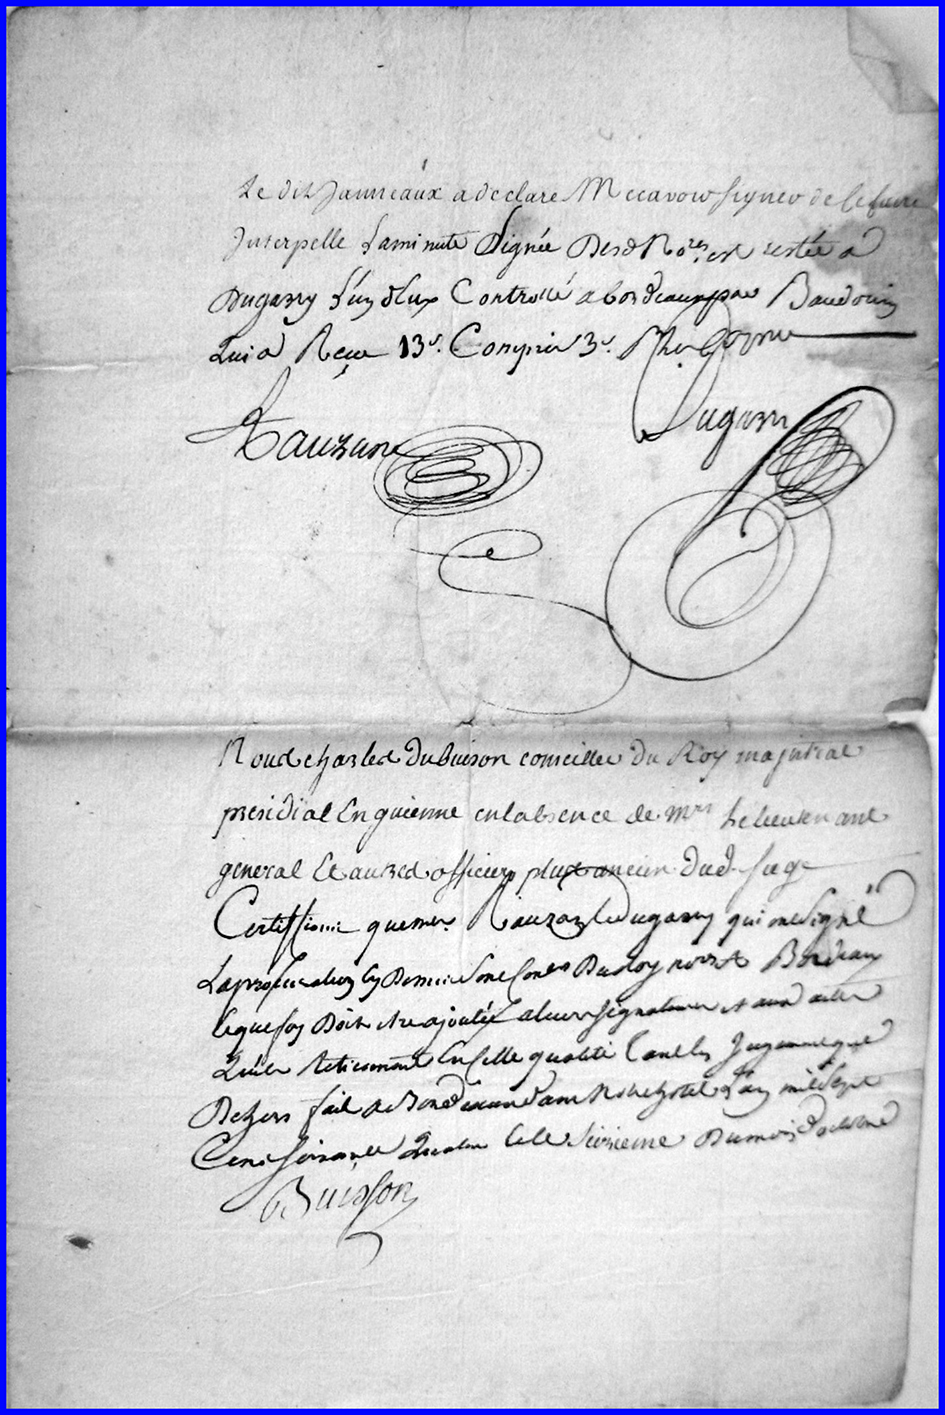 Le dit Janneaux a declare Ne scavoir signer de ce faire
Interpelle La minute Signée Desd Nores est restée a
Dugarry L'un d'Eux Controllé a bordeaux par Baudouin
Qui a Reçu 13s. Compris 3s.
Rauzan Dugarry
Nous charles Dubuisson conseiller du Roy magistrat
presidial En guienne en labsence de Mrs Le lieutenant
general Et autres officiers plus anciens dud. siege
Certiffions que mes Rauzan et Dugarry qui ont signé
La procuration cy Dessus sont Coners Du Roy nores a Bordeaux
et que foy Doit etre ajoutée a leurs signatures et aux actes
Quils Retiennent En cette qualité tant En Jugement que
Dehors fait a Bordeaux dans Notre hotel L'an mil sept
Cens soixante Quatre Et le sixieme Du mois d'octobre
Buisson